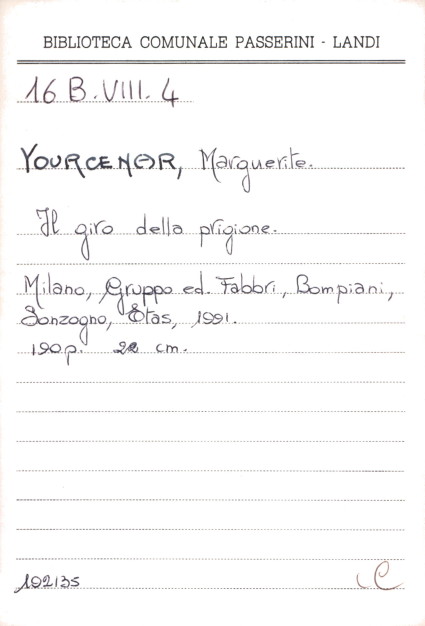 BIBLIOTECA COMUNALE PASSERINI - LANDI
16 B.VIII.4
YOURCENAR, Marguerite.
Il giro della prigione.
Milano, Gruppo ed. Fabbri, Bompiani,
Sonzogno, Etas, 1991.
190 p. 22 cm.
192135
C